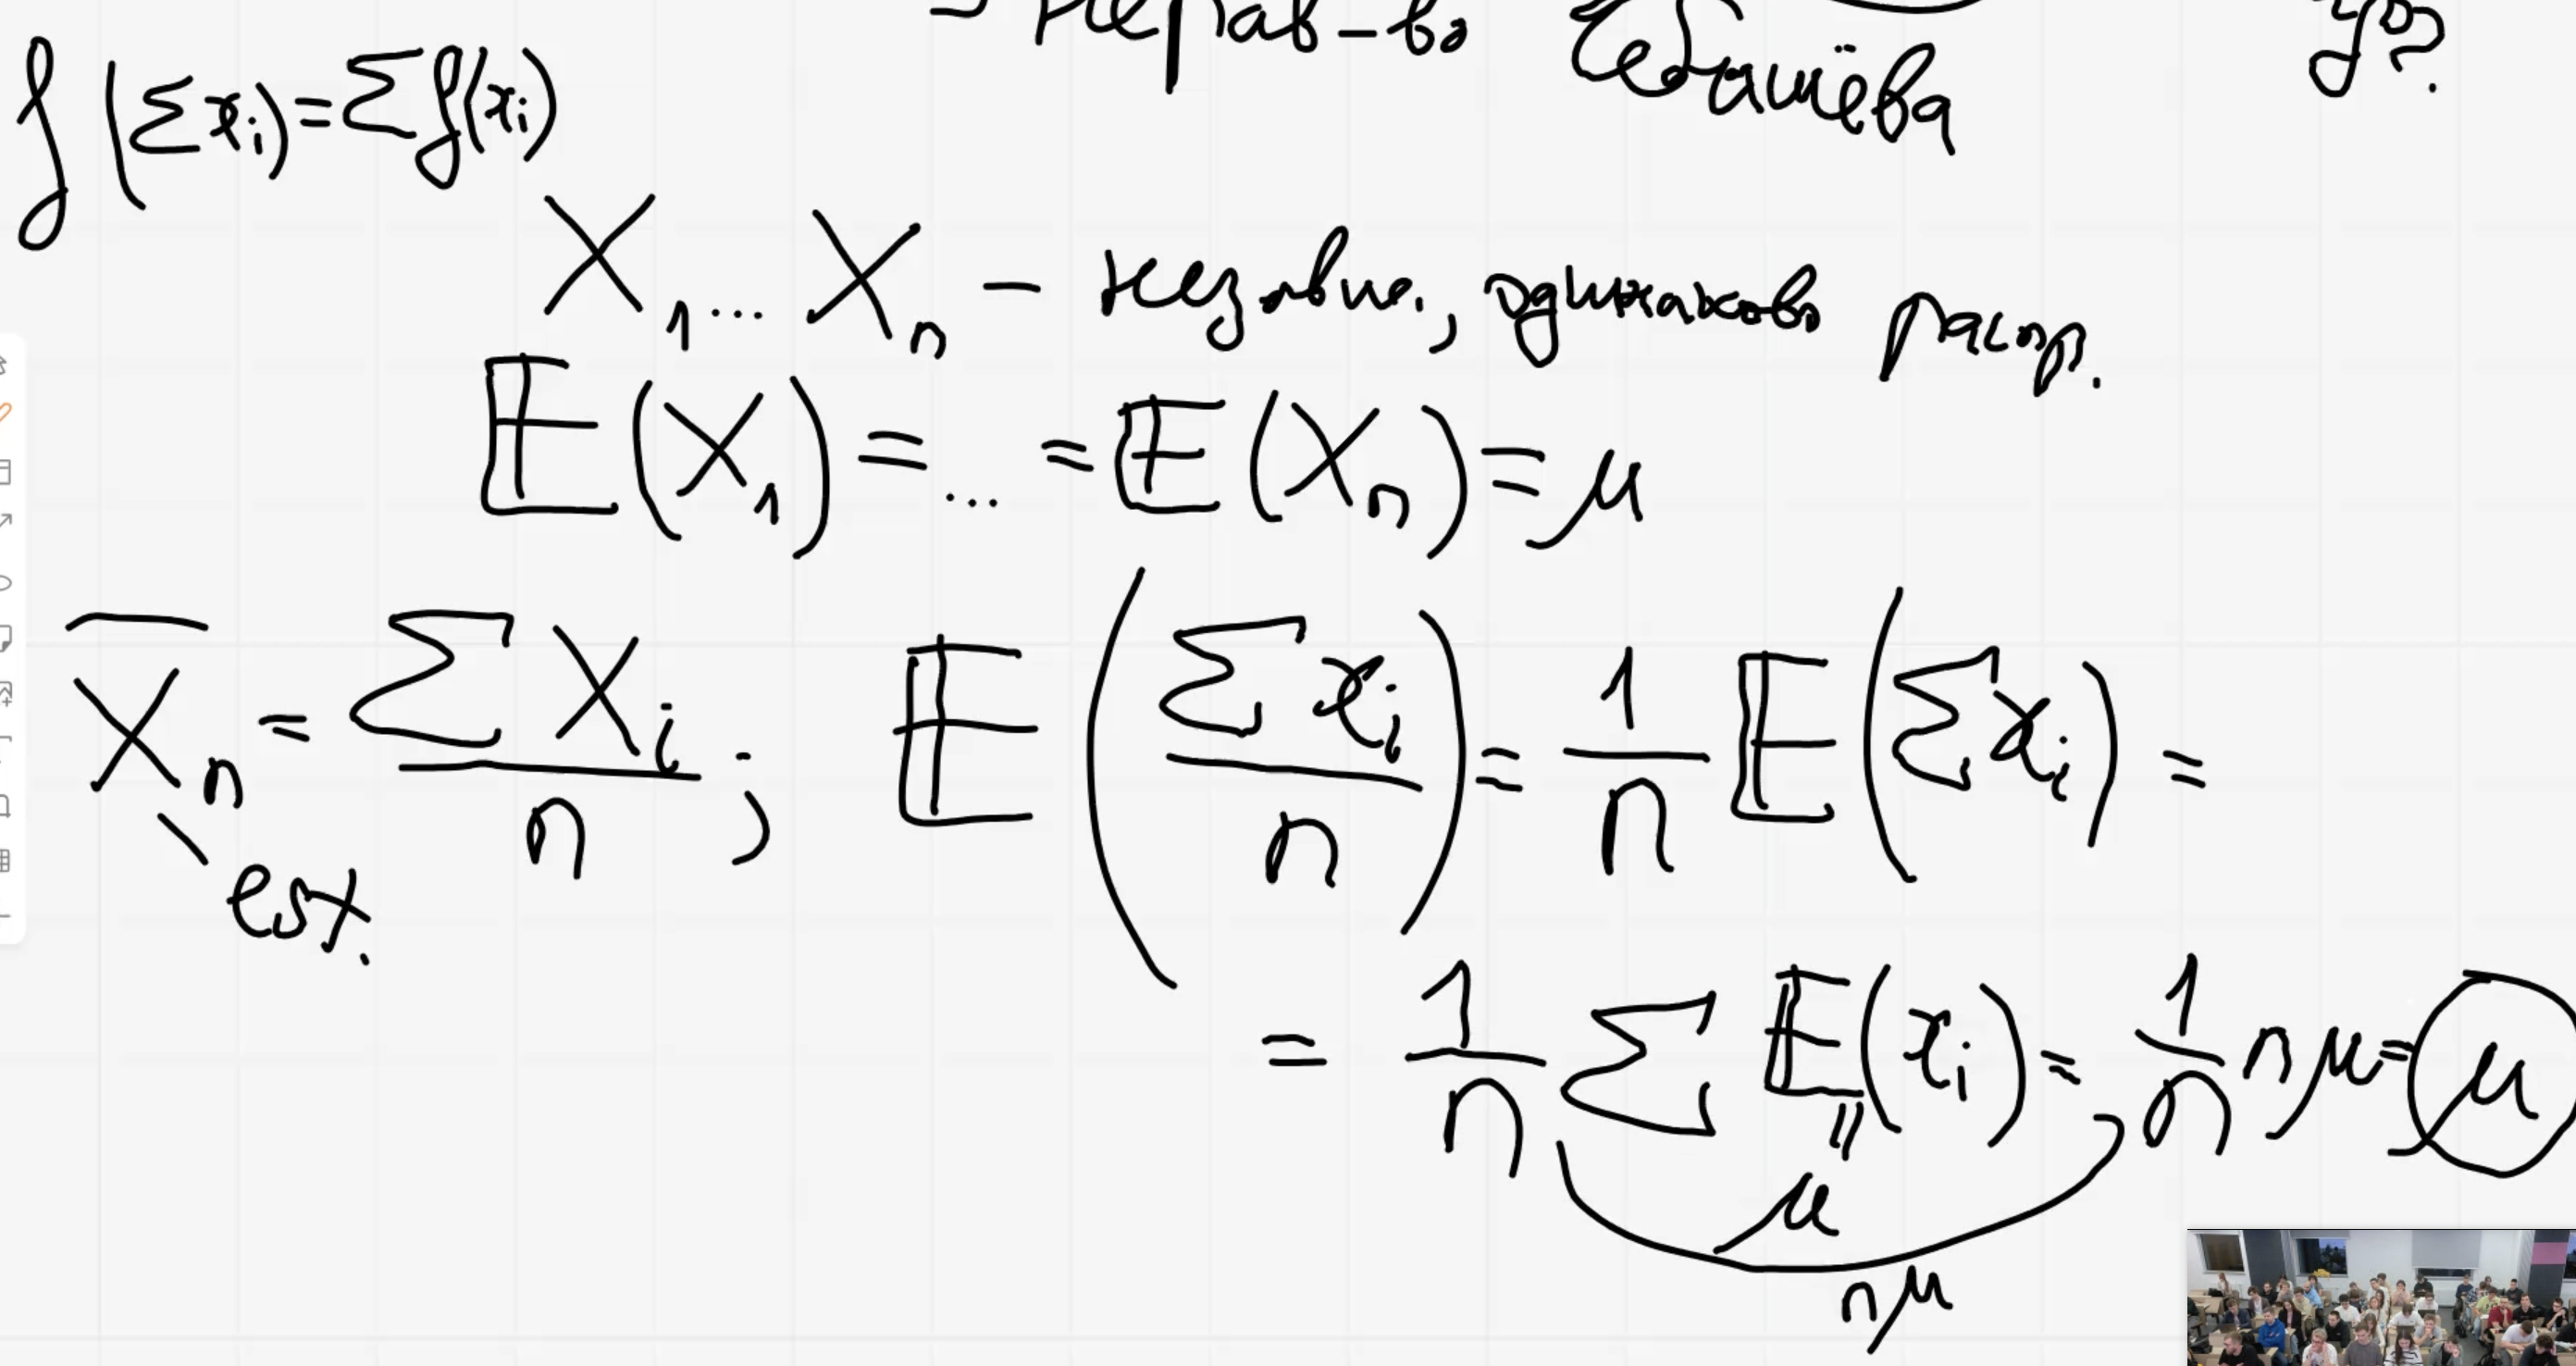 → Нерав-во Чебышёва
f(Σxi)=Σf(xi)
X1...Xn – независ., одинаково распр.
𝔼(X1)=...=𝔼(Xn)=μ
X̅n = ΣXi / n ; 𝔼(Σxi / n) = 1/n 𝔼(Σxi) =
est.
= 1/n Σ𝔼(xi) = 1/n nμ = μ
||
μ
nμ